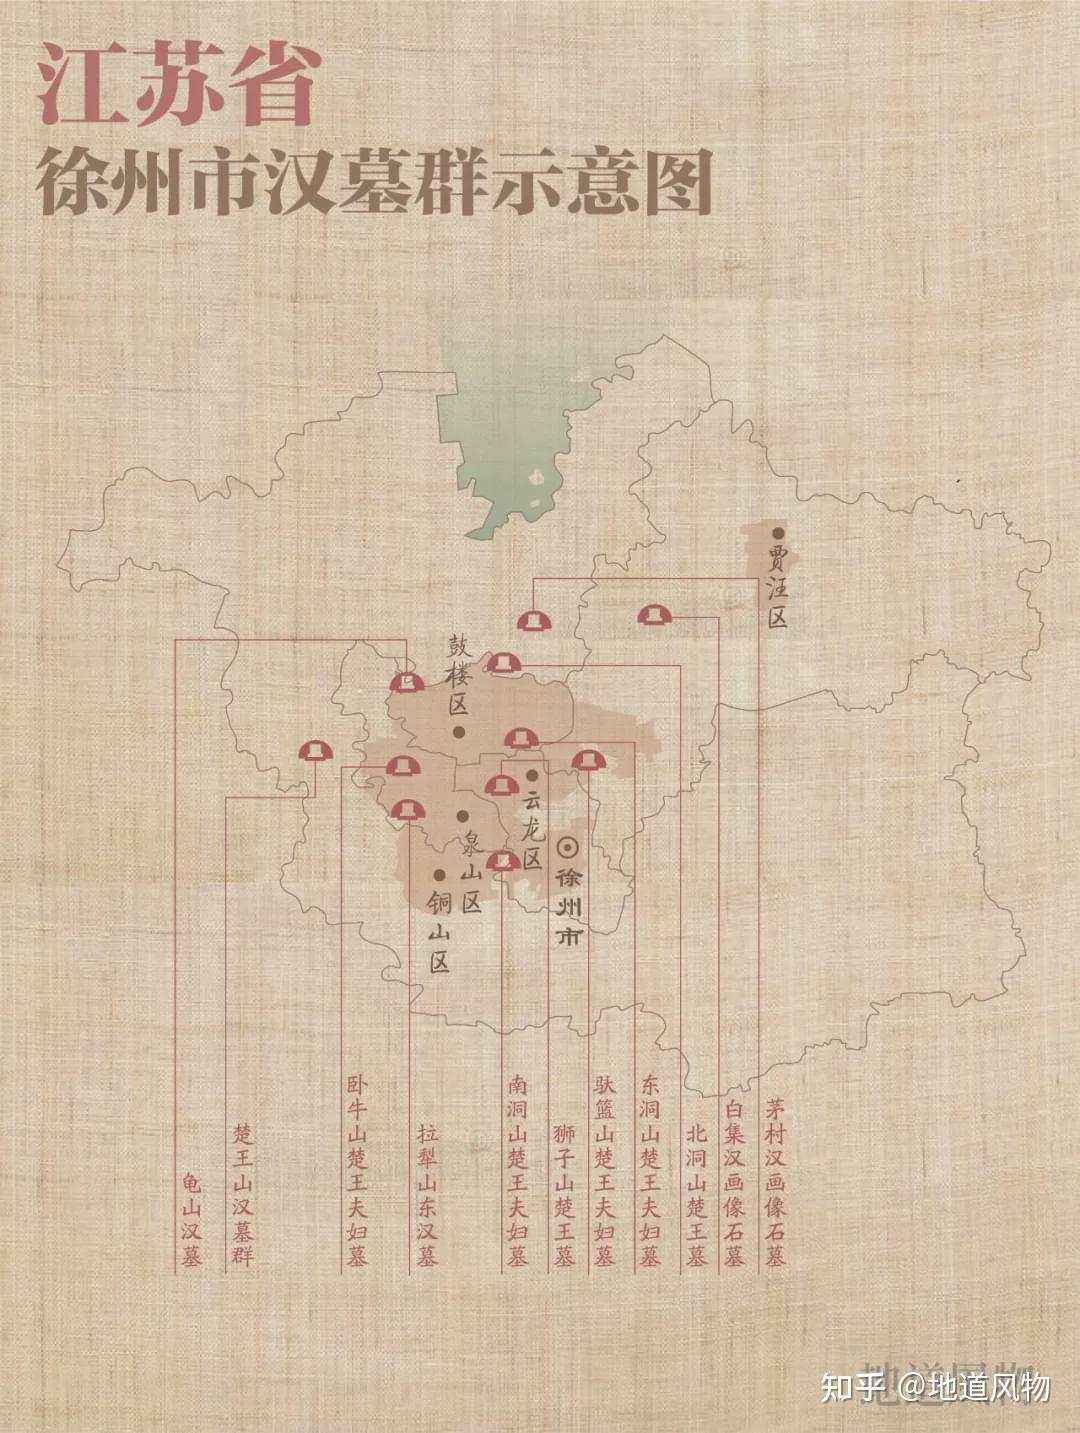 江苏省
徐州市汉墓群示意图
贾汪区
鼓楼区
云龙区
泉山区
徐州市
铜山区
龟山汉墓
楚王山汉墓群
卧牛山楚王夫妇墓
拉犁山东汉墓
南洞山楚王夫妇墓
狮子山楚王墓
驮篮山楚王夫妇墓
东洞山楚王夫妇墓
北洞山楚王墓
白集汉画像石墓
茅村汉画像石墓
地道风物
知乎 @地道风物